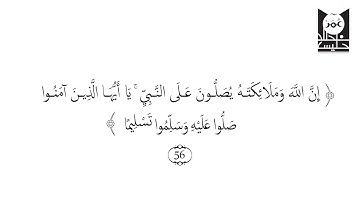 ﴿ إِنَّ اللَّهَ وَمَلَائِكَتَهُ يُصَلُّونَ عَلَى النَّبِيِّ ۚ يَا أَيُّهَا الَّذِينَ آمَنُوا
صَلُّوا عَلَيْهِ وَسَلِّمُوا تَسْلِيمًا ﴾
56